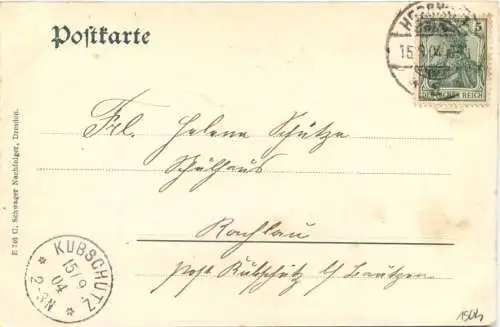 Postkarte
HERRNHUT
15.9.04
5
DEUTSCHES REICH
Frl. Helene Schütze
Schulhaus
Rachlau
Post Kubschütz b/ Bautzen
E 746 C. Schwager Nachfolger, Dresden.
KUBSCHÜTZ
15/9
04
2-3N